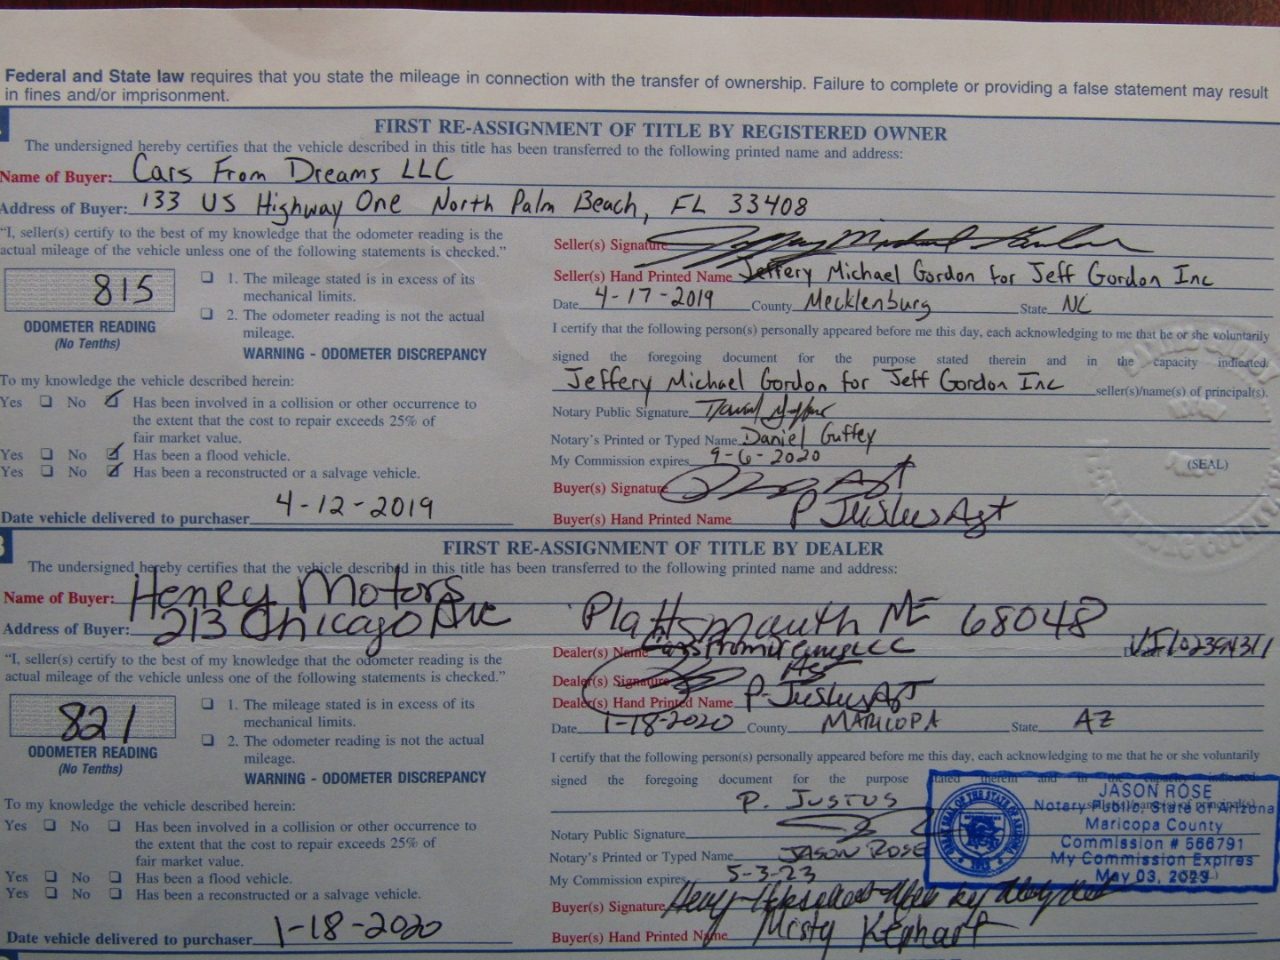 Federal and State law requires that you state the mileage in connection with the transfer of ownership. Failure to complete or providing a false statement may result
in fines and/or imprisonment.
FIRST RE-ASSIGNMENT OF TITLE BY REGISTERED OWNER
The undersigned hereby certifies that the vehicle described in this title has been transferred to the following printed name and address:
Name of Buyer: Cars From Dreams LLC
Address of Buyer: 133 US Highway One North Palm Beach, FL 33408
"I, seller(s) certify to the best of my knowledge that the odometer reading is the
actual mileage of the vehicle unless one of the following statements is checked."
815
ODOMETER READING
(No Tenths)
1. The mileage stated is in excess of its
mechanical limits.
2. The odometer reading is not the actual
mileage.
WARNING - ODOMETER DISCREPANCY
To my knowledge the vehicle described herein:
Yes No Has been involved in a collision or other occurrence to
the extent that the cost to repair exceeds 25% of
fair market value.
Yes No Has been a flood vehicle.
Yes No Has been a reconstructed or a salvage vehicle.
Date vehicle delivered to purchaser 4-12-2019
Seller(s) Signature
Seller(s) Hand Printed Name Jeffery Michael Gordon for Jeff Gordon Inc
Date 4-17-2019 County Mecklenburg State NC
I certify that the following person(s) personally appeared before me this day, each acknowledging to me that he or she voluntarily
signed the foregoing document for the purpose stated therein and in the capacity indicated
Jeffery Michael Gordon for Jeff Gordon Inc seller(s)/name(s) of principal(s).
Notary Public Signature
Notary's Printed or Typed Name Daniel Guffey
My Commission expires 9-6-2020
(SEAL)
Buyer(s) Signature Agt
Buyer(s) Hand Printed Name P Justus Agt
FIRST RE-ASSIGNMENT OF TITLE BY DEALER
The undersigned hereby certifies that the vehicle described in this title has been transferred to the following printed name and address:
Name of Buyer: Henry Motors
Address of Buyer: 213 Chicago Ave Plattsmouth NE 68048
"I, seller(s) certify to the best of my knowledge that the odometer reading is the
actual mileage of the vehicle unless one of the following statements is checked."
821
ODOMETER READING
(No Tenths)
1. The mileage stated is in excess of its
mechanical limits.
2. The odometer reading is not the actual
mileage.
WARNING - ODOMETER DISCREPANCY
To my knowledge the vehicle described herein:
Yes No Has been involved in a collision or other occurrence to
the extent that the cost to repair exceeds 25% of
fair market value.
Yes No Has been a flood vehicle.
Yes No Has been a reconstructed or a salvage vehicle.
Date vehicle delivered to purchaser 1-18-2020
Dealer(s) Name
Dealer(s) Signature Agt
Dealer(s) Hand Printed Name P. Justus Agt
Date 1-18-2020 County MARICOPA State AZ
I certify that the following person(s) personally appeared before me this day, each acknowledging to me that he or she voluntarily
signed the foregoing document for the purpose stated therein and in the capacity indicated
P. JUSTUS
Notary Public Signature
Notary's Printed or Typed Name JASON ROSE
My Commission expires 5-3-23
JASON ROSE
Notary Public, State of Arizona
Maricopa County
Commission # 566791
My Commission Expires
May 03, 2023
Buyer(s) Signature
Buyer(s) Hand Printed Name Misty Kephart